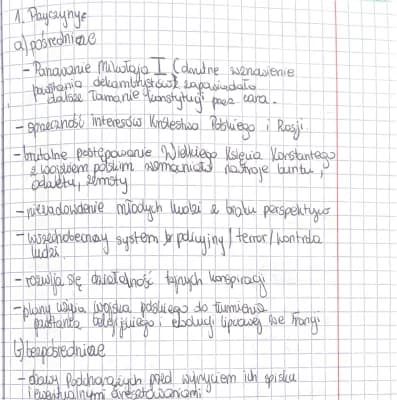 1. Przyczyny
a) pośrednie
- Panowanie Mikołaja I (brutalne
powstania dekabrystów) zapowiadało
dalsze łamanie konstytucji przez cara.
- sprzeczność interesów Królestwa Polskiego i Rosji.
- brutalne postępowanie Wielkiego Księcia Konstantego
z wojskiem polskim wzmacniało nastroje buntu,
odwetu, zemsty
- niezadowolenie młodych ludzi z braku perspektyw
- wszechobecny system policyjny/terror/kontrola
ludzi
- rozwija się działalność tajnych konspiracji
- plany użycia wojska polskiego do tłumienia
powstania belgijskiego i rewolucji lipcowej we Francji
b) bezpośrednie
- obawy Podchorążych przed wykryciem ich spisku
i ewentualnymi aresztowaniami